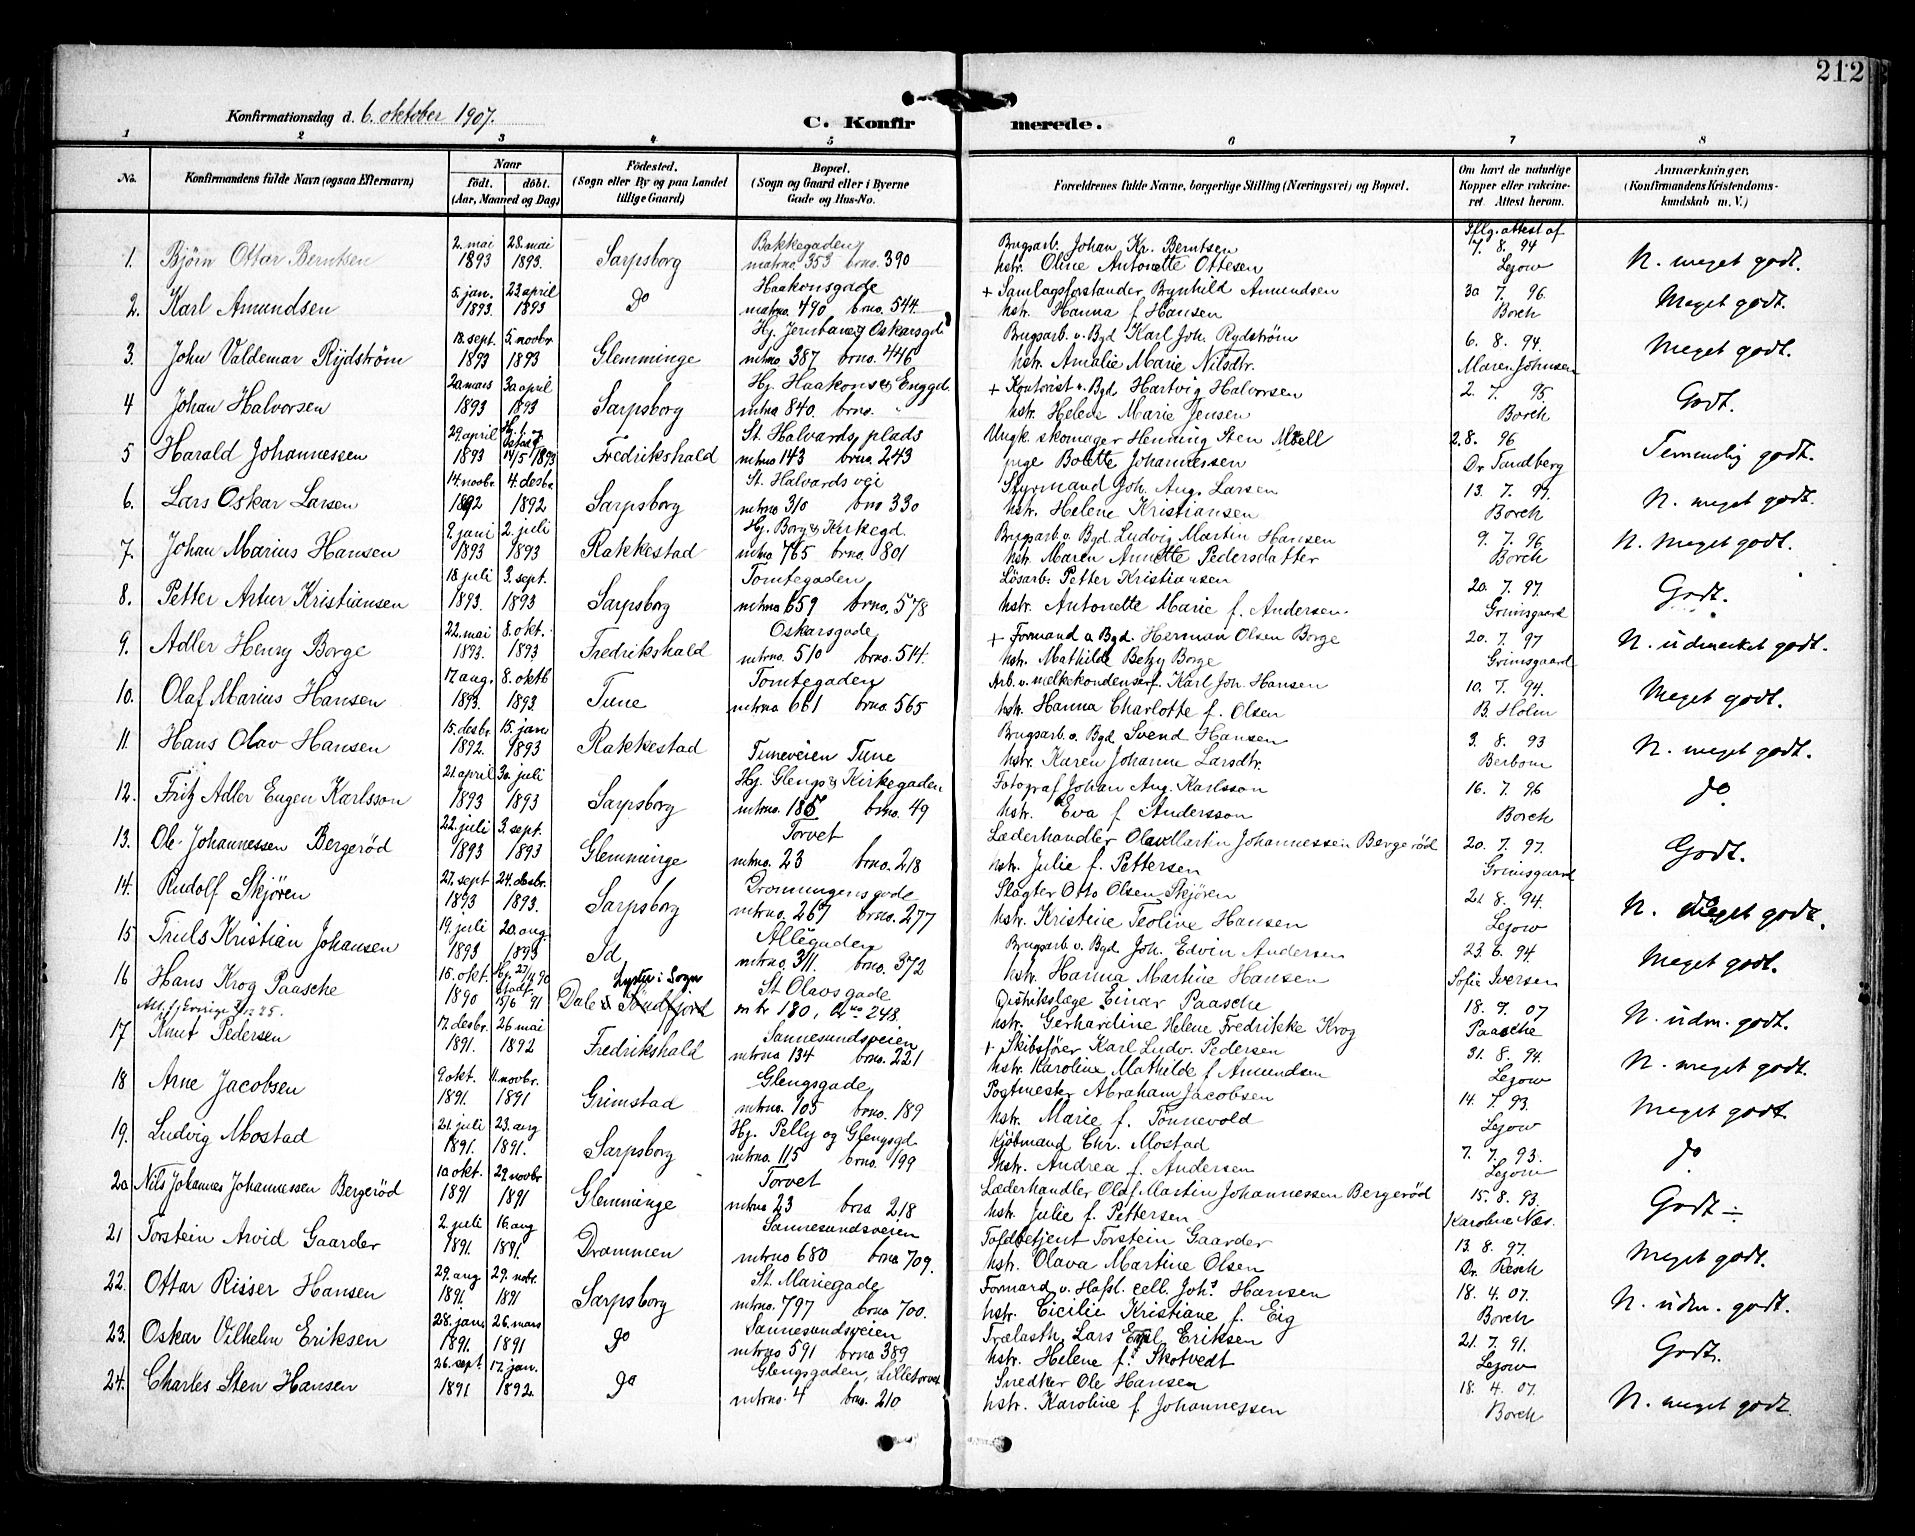 212
Konfirmationsdag d. 6. oktober 1907.
C. Konfirmerede.
1 2 3 4 5 6 7 8
No. Konfirmandens fulde Navn (ogsaa Efternavn) Naar født. døbt. (Aar, Maaned og Dag) Fødested. (Sogn eller By og paa Landet tillige Gaard) Bopæl. (Sogn og Gaard eller i Byerne Gade og Hus-No. Forældrenes fulde Navne, borgerlige Stilling (Næringsvei) og Bopæl. Om havt de naturlige Kopper eller vakcineret. Attest herom. Anmærkninger. (Konfirmandens Kristendomskundskab m. V.)
Iflg. attest af
1. Bjørn Ottar Berntsen 2. mai 1893 28. mai 1893. Sarpsborg Bakkegaden matrno. 353 brno. 390 Brugsarb. Johan Kr. Berntsen hstr. Oline Antonette Ottesen 7. 8. 94 Lejow N. meget godt.
2. Karl Amundsen 5. jan. 1893. 23 april 1893 do Haakonsgade matrno. 490 brno. 544. + Samlagsforstander Brynhild Amundsen hstr. Hanna f. Hansen 30 7. 96. Borch Meget godt.
3. John Valdemar Rydstrøm 18. sept. 1893 5. novbr. 1893 Glemminge Hj. Jernbane & Oskarsgd. mtrno 387 brno. 446 Brugsarb. v. Bgd Karl Joh. Rydstrøm hstr. Amalie Marie Nilsdtr. 6. 8. 94. Maren Johnsen Meget godt.
4 Johan Halvorsen 20 mars 1893 30 april 1893 Sarpsborg Hj. Haakons & Enggd. mtrno 840. brno. " + Kontorist v. Bgd. Hartvig Halvorsen hstr. Helene Marie Jensen 2. 7. 95 Borch Godt.
5 Harald Johannessen 29. april 1893 Hj. og stadf. 14/5 1893 Fredrikshald St. Halvards plads mtrno 143 brno. 243 Ungk. skomager Henning Sten Moell pige Bolette Johannessen 2. 8. 96 Dr Tandberg Temmelig godt.
6. Lars Oskar Larsen 14. novbr 1892 4. desbr. 1892 Sarpsborg St. Halvards vei mtrno 310 brno 330 Styrmand Joh. Aug. Larsen hstr. Helene Kristiansen 13. 7. 97. Borch N. meget godt.
7. Johan Marius Hansen 9. juni 1893 2. juli 1893 Rakkestad Hj. Borg & Kirkegd. mtrno 765 brno. 801 Brugsarb. v. Bgd. Ludvig Martin Hansen hstr. Maren Annette Pedersdatter 9. 7. 96 Borch N. meget godt.
8. Petter Artur Kristiansen 18. juli 1893. 3. sept. 1893 Sarpsborg Tomtegaden mtrno 659 brno. 578 Løsarb. Petter Kristiansen hstr. Antonette Marie f. Andersen. 20. 7. 97. Grimsgaard Godt.
9. Adler Henry Borge 22. mai 1893. 8. okt. 1893 Fredrikshald Oskarsgade mtrno. 510 brno. 514. + Formand v Bgd. Herman Olsen Borge hstr. Mathilde Betzy Borge 20. 7. 97 Grimsgaard N. udmerket godt.
10. Olaf Marius Hansen 17 aug. 1893. 8. oktb 1893. Tune Tomtegaden mtrno 661 brno. 565 Arb. v. melkekondenserf. Karl Joh. Hansen hstr. Hanna Charlotte f. Olsen 10. 7. 94. B. Holm Meget godt.
11. Hans Olav Hansen 15. desbr. 1892. 15. jan. 1893 Rakkestad Tuneveien Tune Brugsarb. v. Bgd Svend Hansen hstr. Karen Johanne Larsdtr. 3. 8. 93 Berbom N. meget godt.
12. Fritz Adler Eugen Karlsson 21. april 1893 30. juli 1893 Sarpsborg Hj. Glengs & Kirkegaden mtrno. 185 brno. 49 Fotograf Johan Aug. Karlsson hstr. Eva f Andersson 16. 7. 96 Borch do
13. Ole Johannessen Bergerød 22. juli 1893 3. sept. 1893 Glemminge Torvet mtrno. 23 brno. 218 Læderhandler Olav Martin Johannessen Bergerød hstr. Julie f. Pettersen 20. 7. 97. Grimsgaard Godt.
14. Rudolf Skjøren 27. sept 1893 24. desbr. 1893. Sarpsborg Dronningensgade mtrno. 267 brno. 277 Slagter Otto Olsen Skjøren hstr. Kristine Teoline Hansen 21 8. 94. Lejow N. meget godt.
15 Truls Kristian Johansen 19. juli 1893 20. aug. 1893 Id Allégaden mtrno. 311. brno. 372 Brugsarb. v. Bgd Joh. Edvin Andersen hstr. Hanna Martine Hansen 23. 6. 94. Sofie Iversen Meget godt.
16 Hans Krog Paasche 15. okt. 1890 Hj. 27/11 90 Stadf. 15/6 91 Dale i Søndfjord Lyster i Sogn St Olavsgade mtr 180, brno 248. Distriktslæge Einar Paasche hstr. Gerhardine Helene Fredrikke Krog 18. 9. 07 Paasche N. udm. godt.
17 Knut Pedersen 17. desbr. 1891. 26 mai 1892 Fredrikshald Sannesundsveien mtrno 134 brno. 221 + Skibsfører Karl Ludv. Pedersen hstr. Karoline Mathilde f Amundsen 31. 8. 94. Lejow N. meget godt.
18 Arne Jacobsen 9. okt. 1891. 11. novbr. 1891 Grimstad Glengsgade mtrno. 105 brno. 189 Postmester Abraham Jacobsen hstr. Marie f. Tønnevold 14. 7. 93. Lejow Meget godt.
19. Ludvig Mostad 21. juli 1891. 23. aug 1891. Sarpsborg Hj. Pelly og Glengsgd. mtrno. 115 brno. 199 Kjøbmand Chr. Mostad hstr. Andrea f. Andersen 7. 7. 93. Lejow do
20 Nils Johannes Johannessen Bergerød 10. okt. 1891 29. novbr 1891 Glemminge Torvet mtrno 23 brno 218 Læderhandler Olaf Martin Johannessen Bergerød hstr. Julie f. Pettersen 15. 8. 93. Karoline Næs. Godt ÷
21 Torstein Arvid Gaarder 2. juli 1891. 16. aug 1891. Drammen Sannesundsveien mtrno 680 brno 709. Toldbetjent Torstein Gaarder hstr. Olava Martine Olsen 13. 8. 97. Dr. Resch Meget godt.
22. Ottar Risser Hansen 29. aug 1891. 29. nobr. 1891 Sarpsborg St. Mariegade mtrno. 797 brno 700. Formand v. Hafsl. cell. Johs Hansen hstr. Cicilie Kristiane f. Eig 18. 4. 07. Borch N. udm. godt.
23. Oskar Vilhelm Eriksen 28. jan. 1891. 26. mars 1891 do Sannesundsveien mtrno 591 brno 389 Trælasth. Lars Emil Eriksen hstr. Helene f. Skotvedt 21. 7. 91. Lejow Godt.
24. Charles Sten Hansen 26. sept 1891 17. jan. 1892. do Glengsgaden, Lilletorvet mtrno. 4 brno. 210 Snedker Ole Hansen hstr. Karoline f. Johannessen 18. 4. 07. Borch N. meget godt.